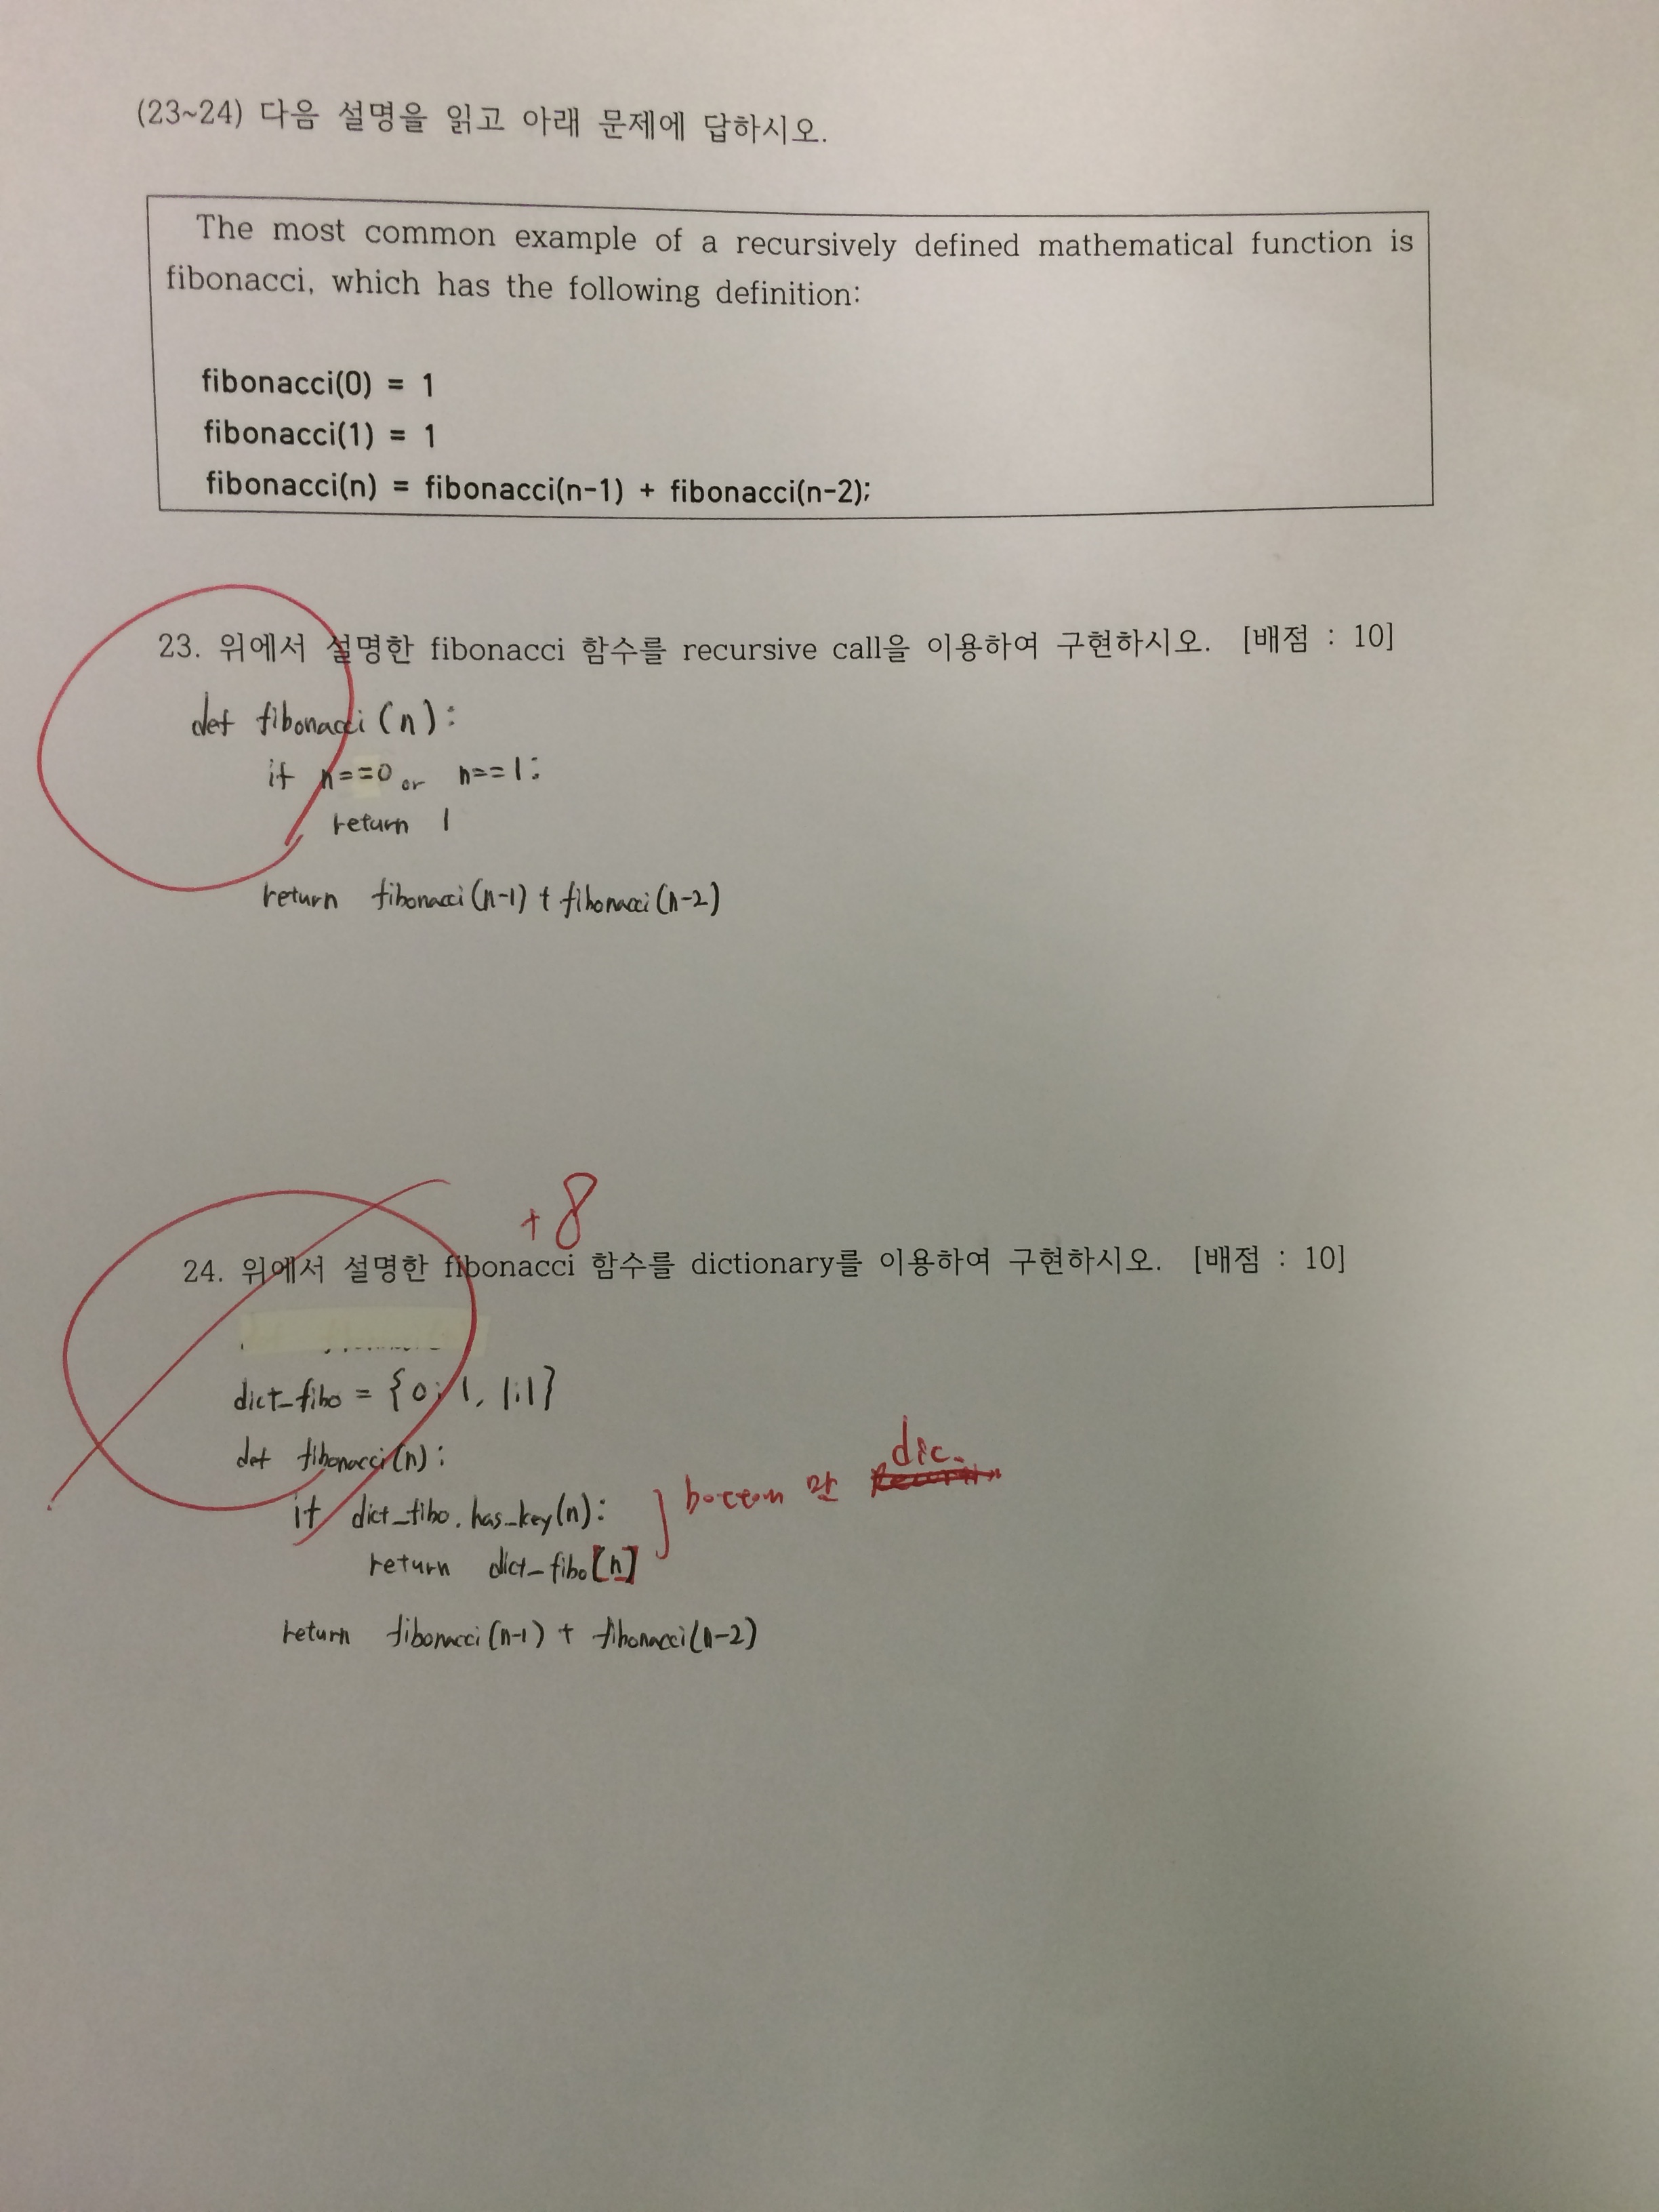 (23~24) 다음 설명을 읽고 아래 문제에 답하시오.
The most common example of a recursively defined mathematical function is
fibonacci, which has the following definition:
fibonacci(0) = 1
fibonacci(1) = 1
fibonacci(n) = fibonacci(n-1) + fibonacci(n-2);
23. 위에서 설명한 fibonacci 함수를 recursive call을 이용하여 구현하시오. [배점 : 10]
def fibonacci(n):
if n==0 or n==1:
return 1
return fibonacci(n-1) + fibonacci(n-2)
+8
24. 위에서 설명한 fibonacci 함수를 dictionary를 이용하여 구현하시오. [배점 : 10]
dict_fibo = {0:1, 1:1}
def fibonacci(n):
if dict_fibo.has_key(n):
return dict_fibo[n]
bottom 만 dic.
return fibonacci(n-1) + fibonacci(n-2)